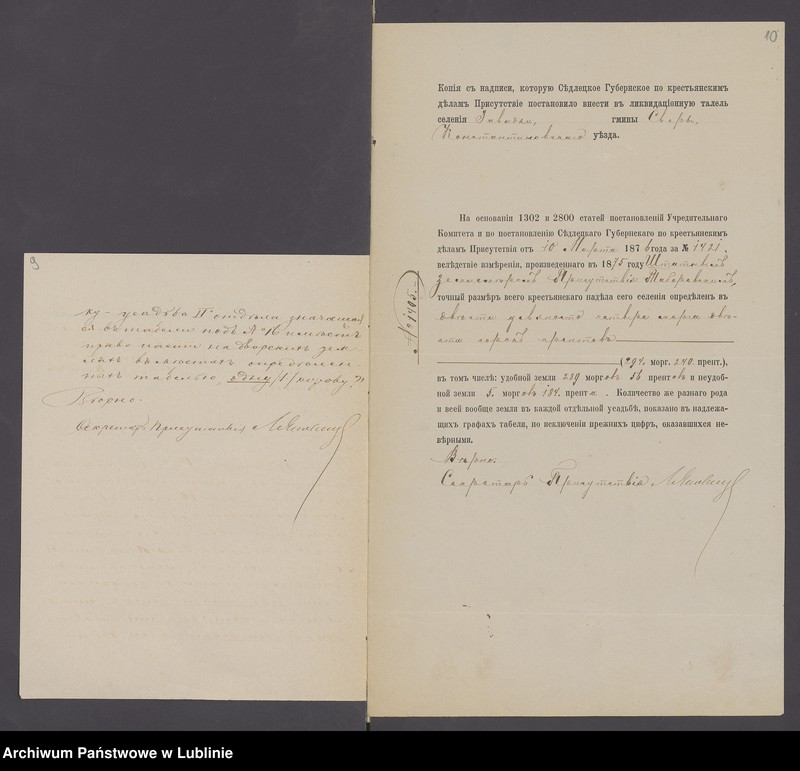 9
ку - усадьба II отдѣла значащая
ся въ табели подъ № 16 имѣетъ
право пасти на дворскихъ зем
ляхъ
табелью, одну /1/ корову."
Вѣрно.
Секретарь Присутствія
10
Копія съ надписи, которую Сѣдлецкое Губернское по крестьянскимъ
дѣламъ Присутствіе постановило внести въ ликвидаціонную талель
селенія гмины
Константиновскаго уѣзда.
На основанія 1302 и 2800 статей постановленій Учредительнаго
Комитета и по постановленію Сѣдлецкаго Губернскаго по крестьянскимъ
дѣламъ Присутствія отъ 10 Марта 1876 года за № 1421,
вслѣдствіе измѣренія, произведеннаго въ 1875 году Штатнымъ
землемѣромъ Присутствія
точный размѣръ всего крестьянскаго надѣла сего селенія опредѣленъ въ
двѣсти девяносто четыре морга двѣ-
сти сорокъ прентовъ
(294 морг. 240 прент.),
въ томъ числѣ: удобной земли 289 морговъ 56 прентовъ и неудоб-
ной земли 5 морговъ 184 прента. Количество же разнаго рода
и всей вообще земли въ каждой отдѣльной усадьбѣ, показано въ надлежа-
щихъ графахъ табели, по исключеніи прежнихъ цифръ, оказавшихся не-
вѣрными.
Вѣрно.
Секретарь Присутствія
№ 1405.
Archiwum Państwowe w Lublinie